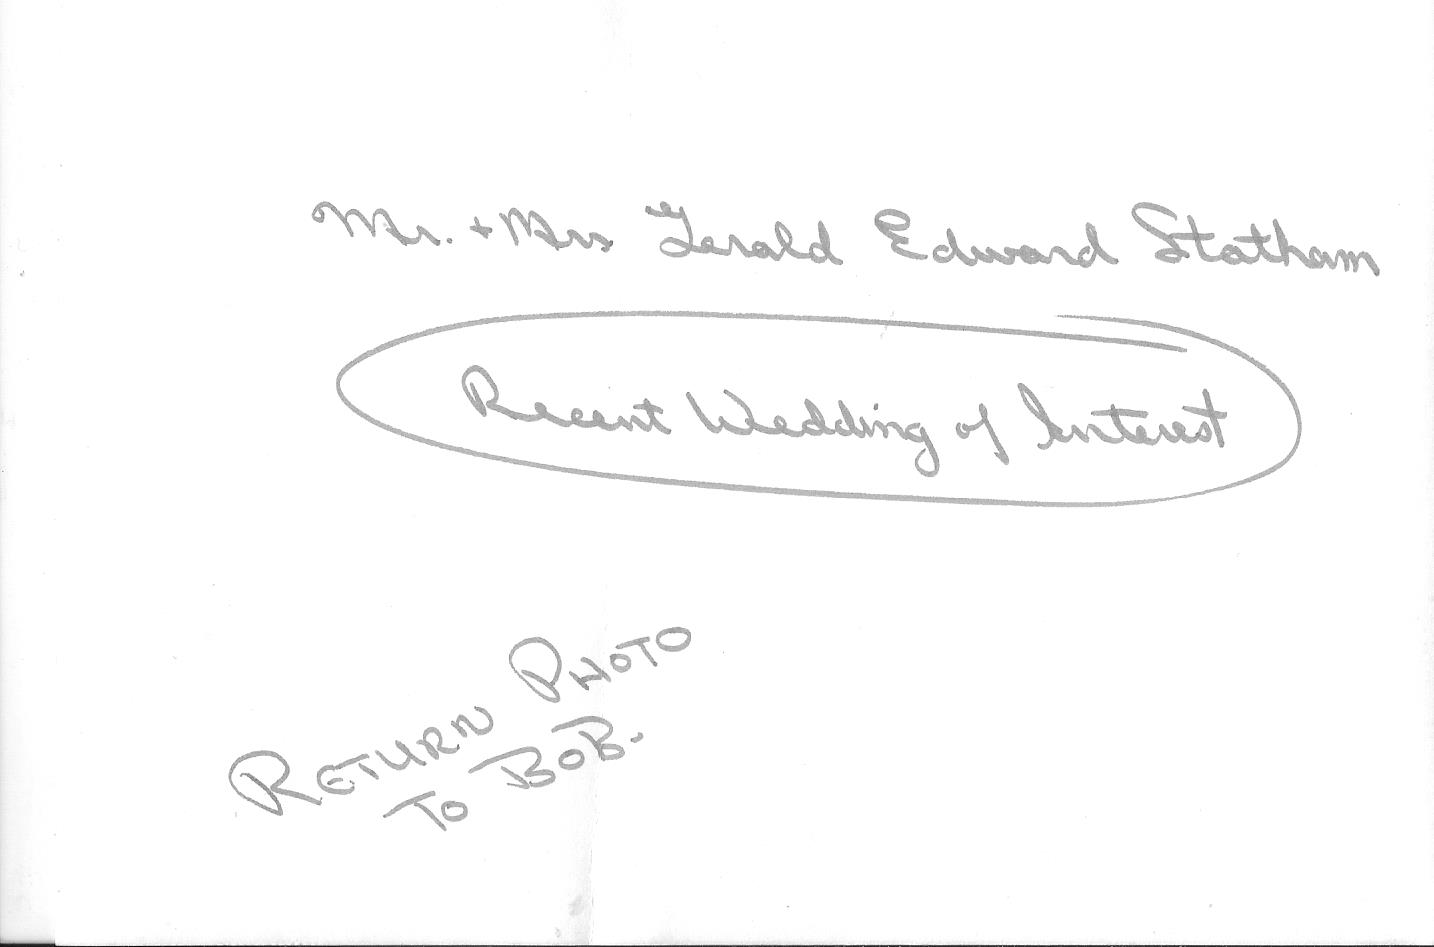 Mr. + Mrs Gerald Edward Statham
Recent Wedding of Interest
RETURN PHOTO
TO BOB.